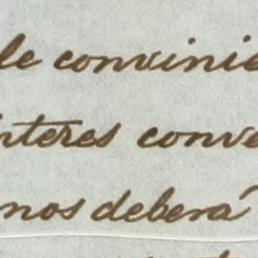 le convinie
interes conve
nos deberá